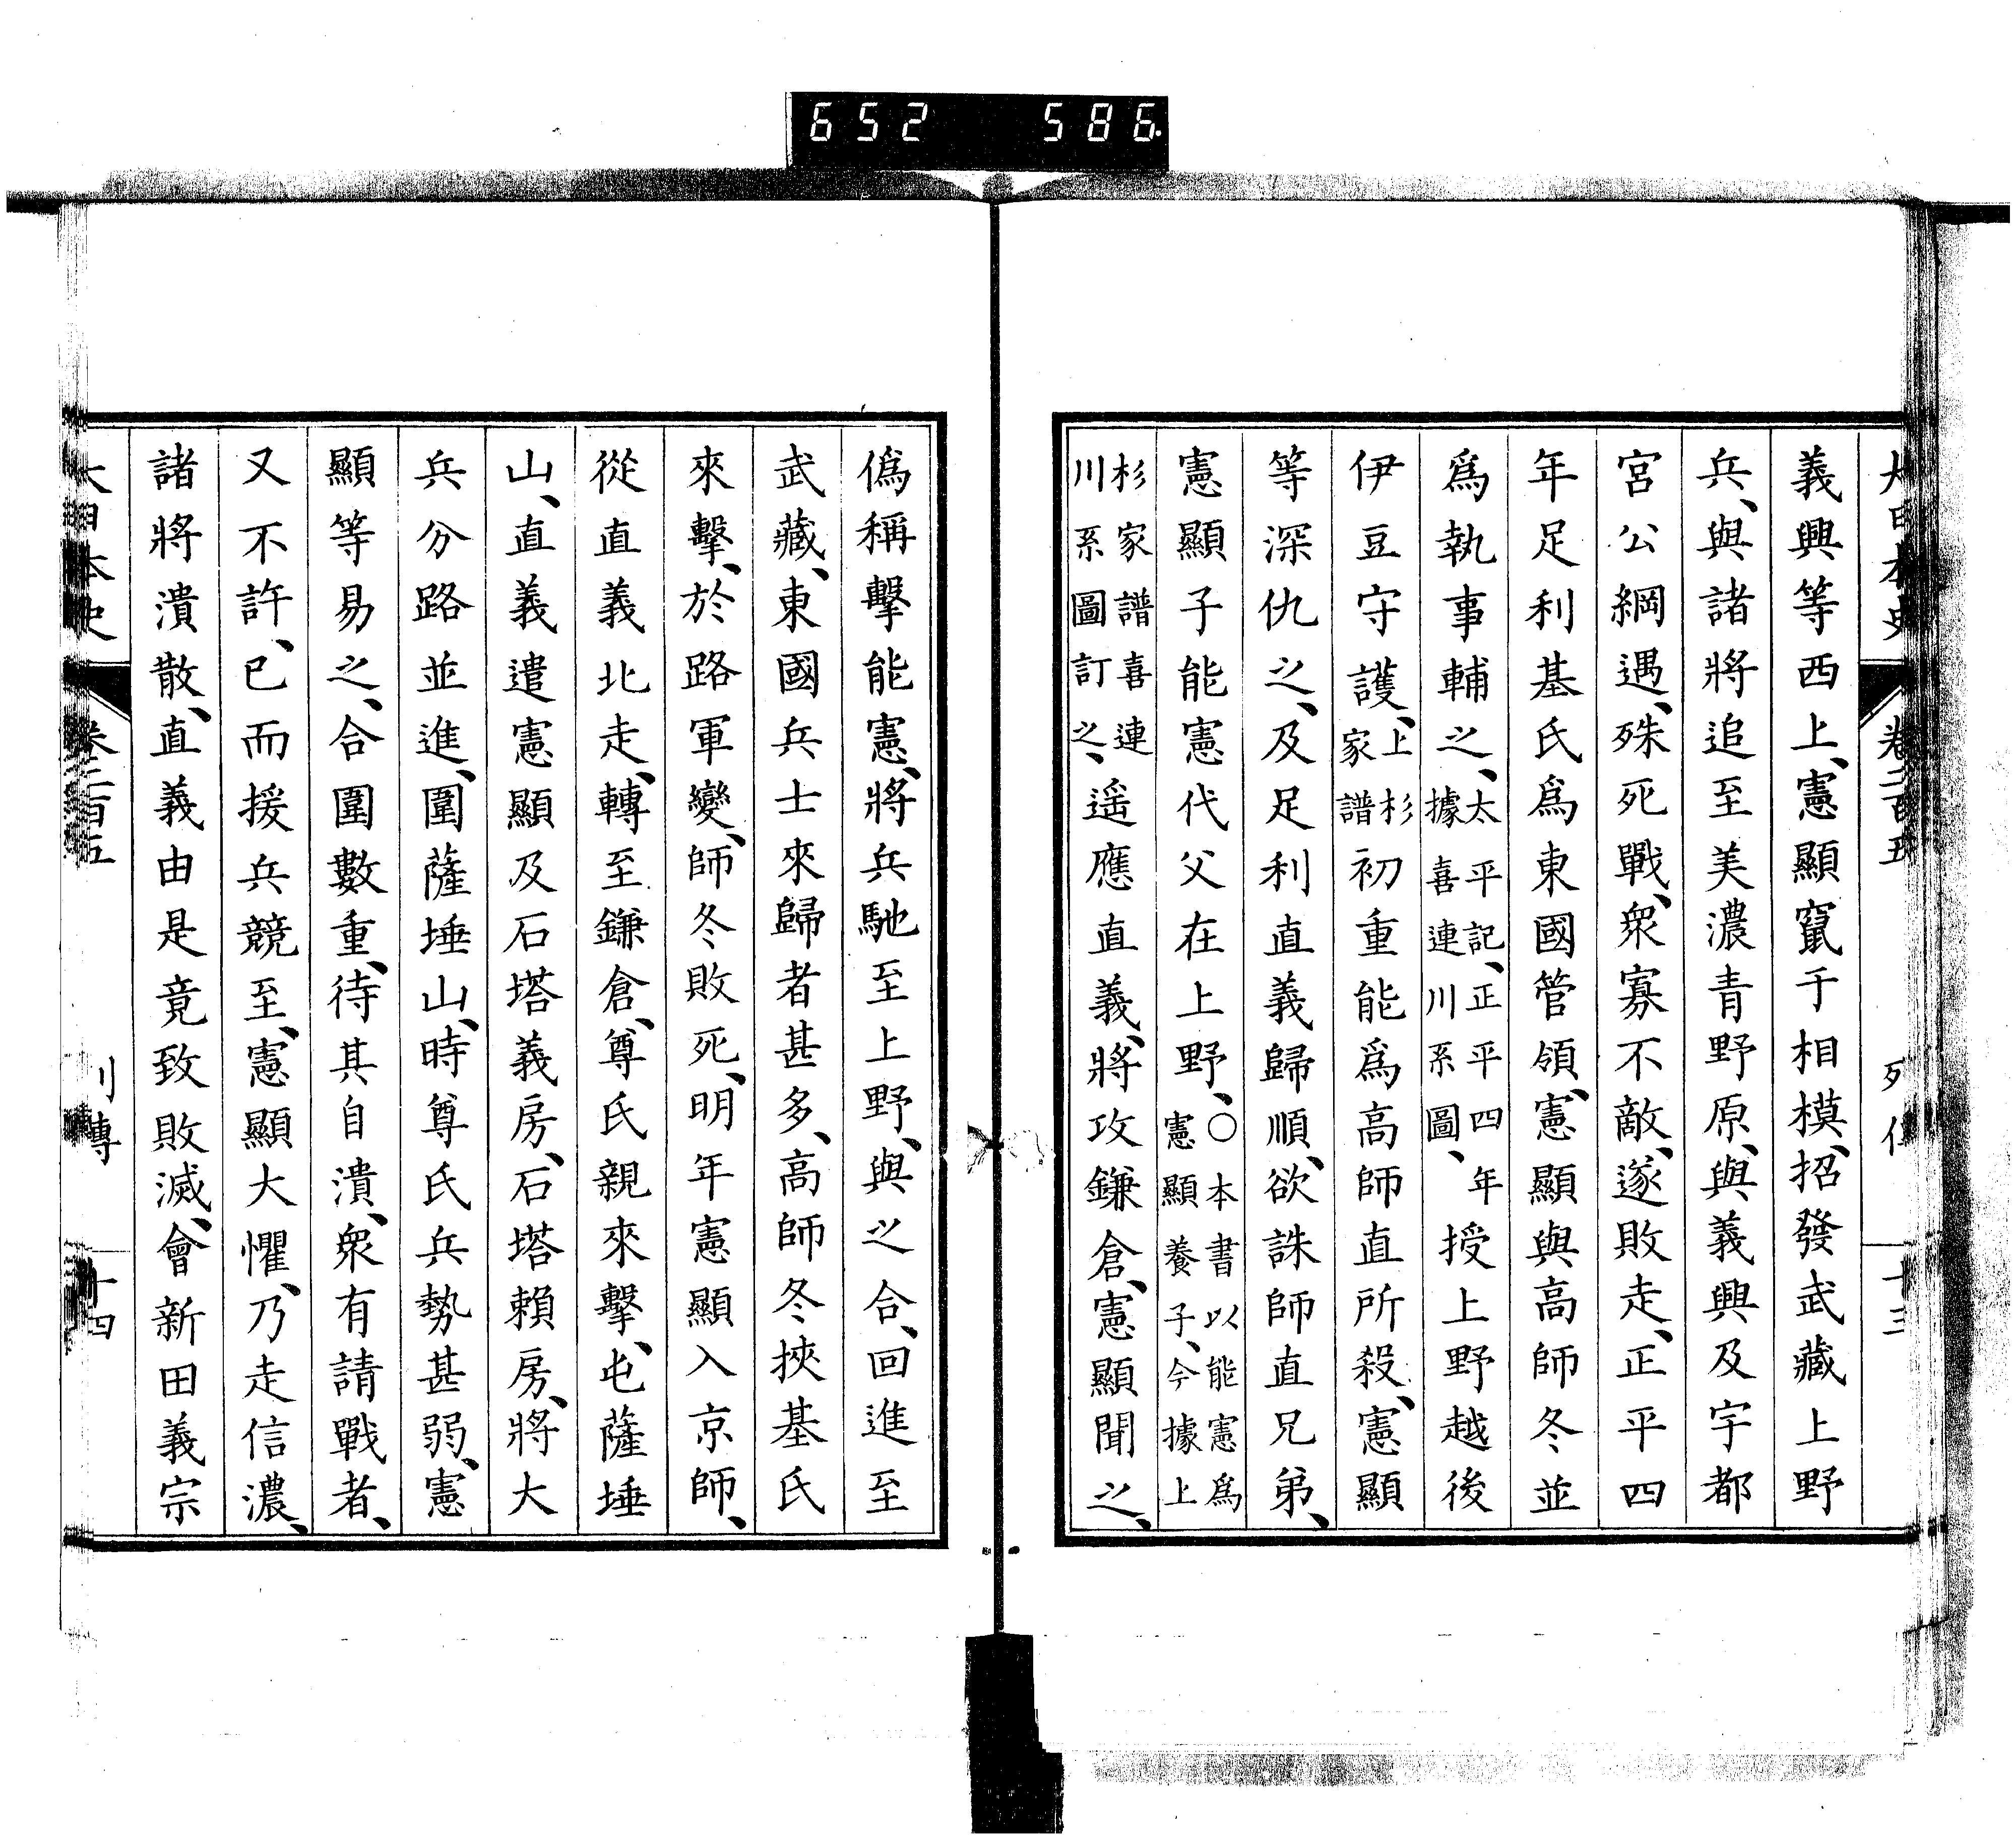 652 586.
義興等西上、憲顯竄于相模、招發武藏上野
兵、與諸將追至美濃青野原、與義興及宇都
宮公綱遇、殊死戰、衆寡不敵、遂敗走、正平四
年足利基氏爲東國管領、憲顯與高師冬並
爲執事輔之、太平記、正平四年據喜連川系圖、授上野越後
伊豆守護、上杉家譜初重能爲高師直所殺、憲顯
等深仇之、及足利直義歸順、欲誅師直兄弟、
憲顯子能憲代父在上野、〇本書以能憲爲憲顯養子、今據上
杉家譜喜連川系圖訂之、遥應直義、將攻鎌倉、憲顯聞之、
僞稱擊能憲、將兵馳至上野、與之合、回進至
武藏、東國兵士來歸者甚多、高師冬挾基氏
來擊、於路軍變、師冬敗死、明年憲顯入京師、
從直義北走、轉至鎌倉、尊氏親來擊、屯薩埵
山、直義遣憲顯及石塔義房、石塔賴房、將大
兵分路並進、圍薩埵山、時尊氏兵勢甚弱、憲
顯等易之、合圍數重、待其自潰、衆有請戰者、
又不許、已而援兵競至、憲顯大懼、乃走信濃、
諸將潰散、直義由是竟致敗滅、會新田義宗
大日本史 卷二百五 列傳 十四